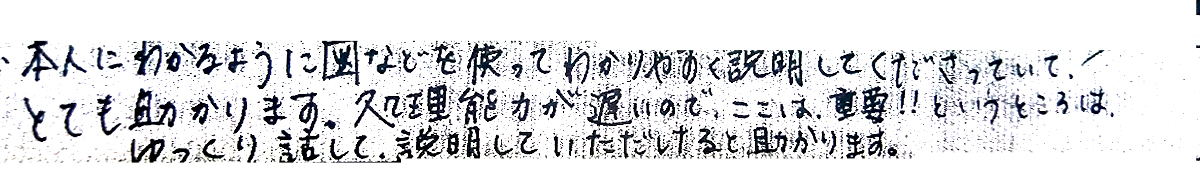 ・本人にわかるように図などを使ってわかりやすく説明してくださっていて、
とても助かります。処理能力が遅いので、ここは、重要!!というところは、
ゆっくり話して、説明していただだけると助かります。